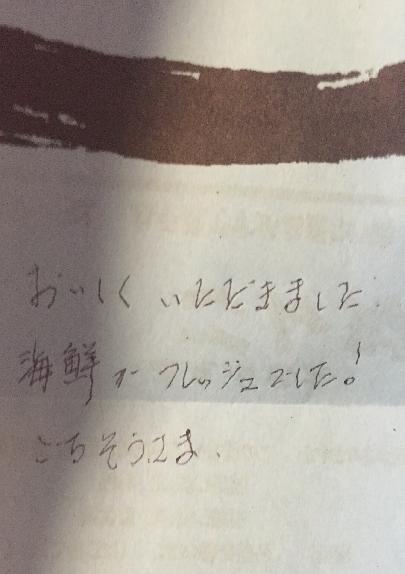 おいしくいただきました.
海鮮がフレッシュでした!
ごちそうさま.